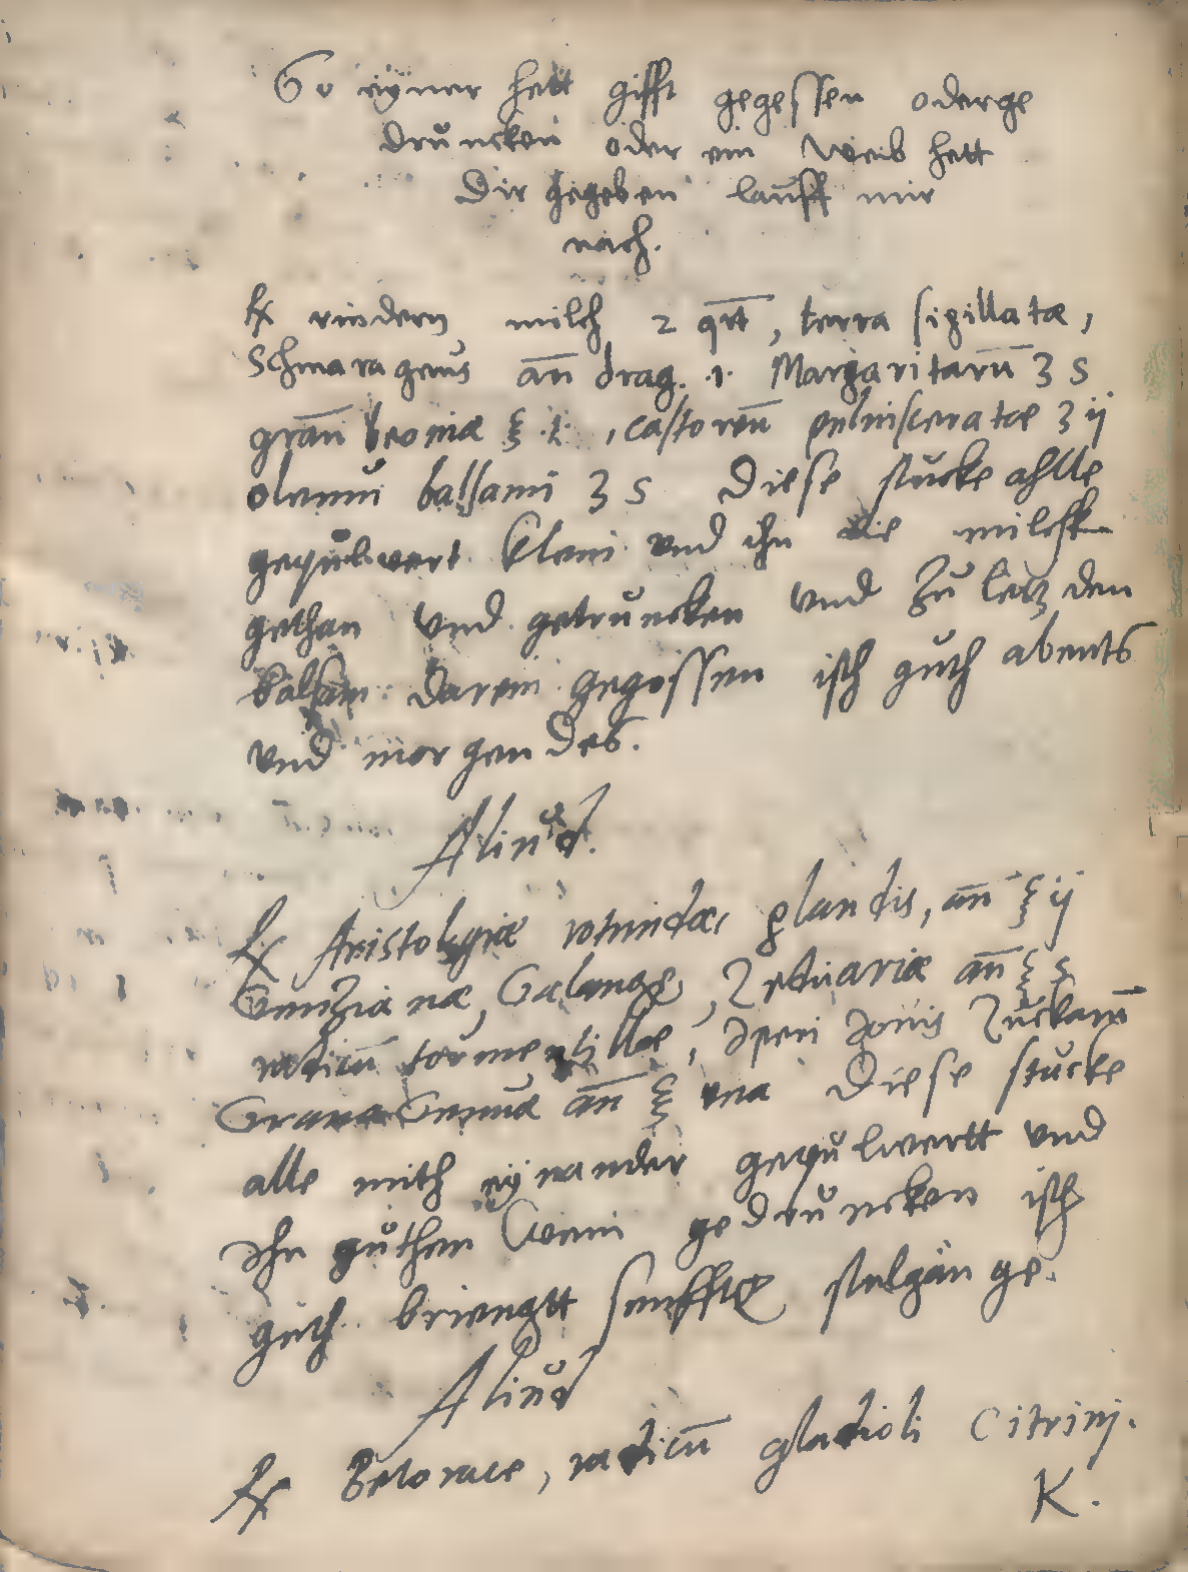 So eÿner hett gifft gegessen oder ge
druncken oder ein Weib hett
Dir gegeben lauff mir
nach.
℞ rindern milch 2 qrt, terra sigillatæ,
Schmaragenus an̄ drag. 1. Margaritarū ʒ s
gran̄ beoniæ ℥ 1, castoreū ʒ ij
oleum balsami ʒ s Diese stucke ahlle
gepulwert klein vnd ihn die milch
gethan vnd getruncken vnd Zu letz den
balsam darein gegossen isch guth abents
vnd morgendes.
Aliud.
℞ Aristologiæ rotundæ, glandis, an̄ ℥ ij
GenZianæ, Galangæ, Zeduariæ an̄ ℥ s
radicū tormentillæ, Zuckarū
Grana an̄ ℥ una Diese stucke
alle mith eÿnander gepulwertt vnd
Ihn guthen Wein gedruncken isch
guth briengtt senffte stulgänge.
Aliud
℞ radicū gladioli Citrinj.
K.